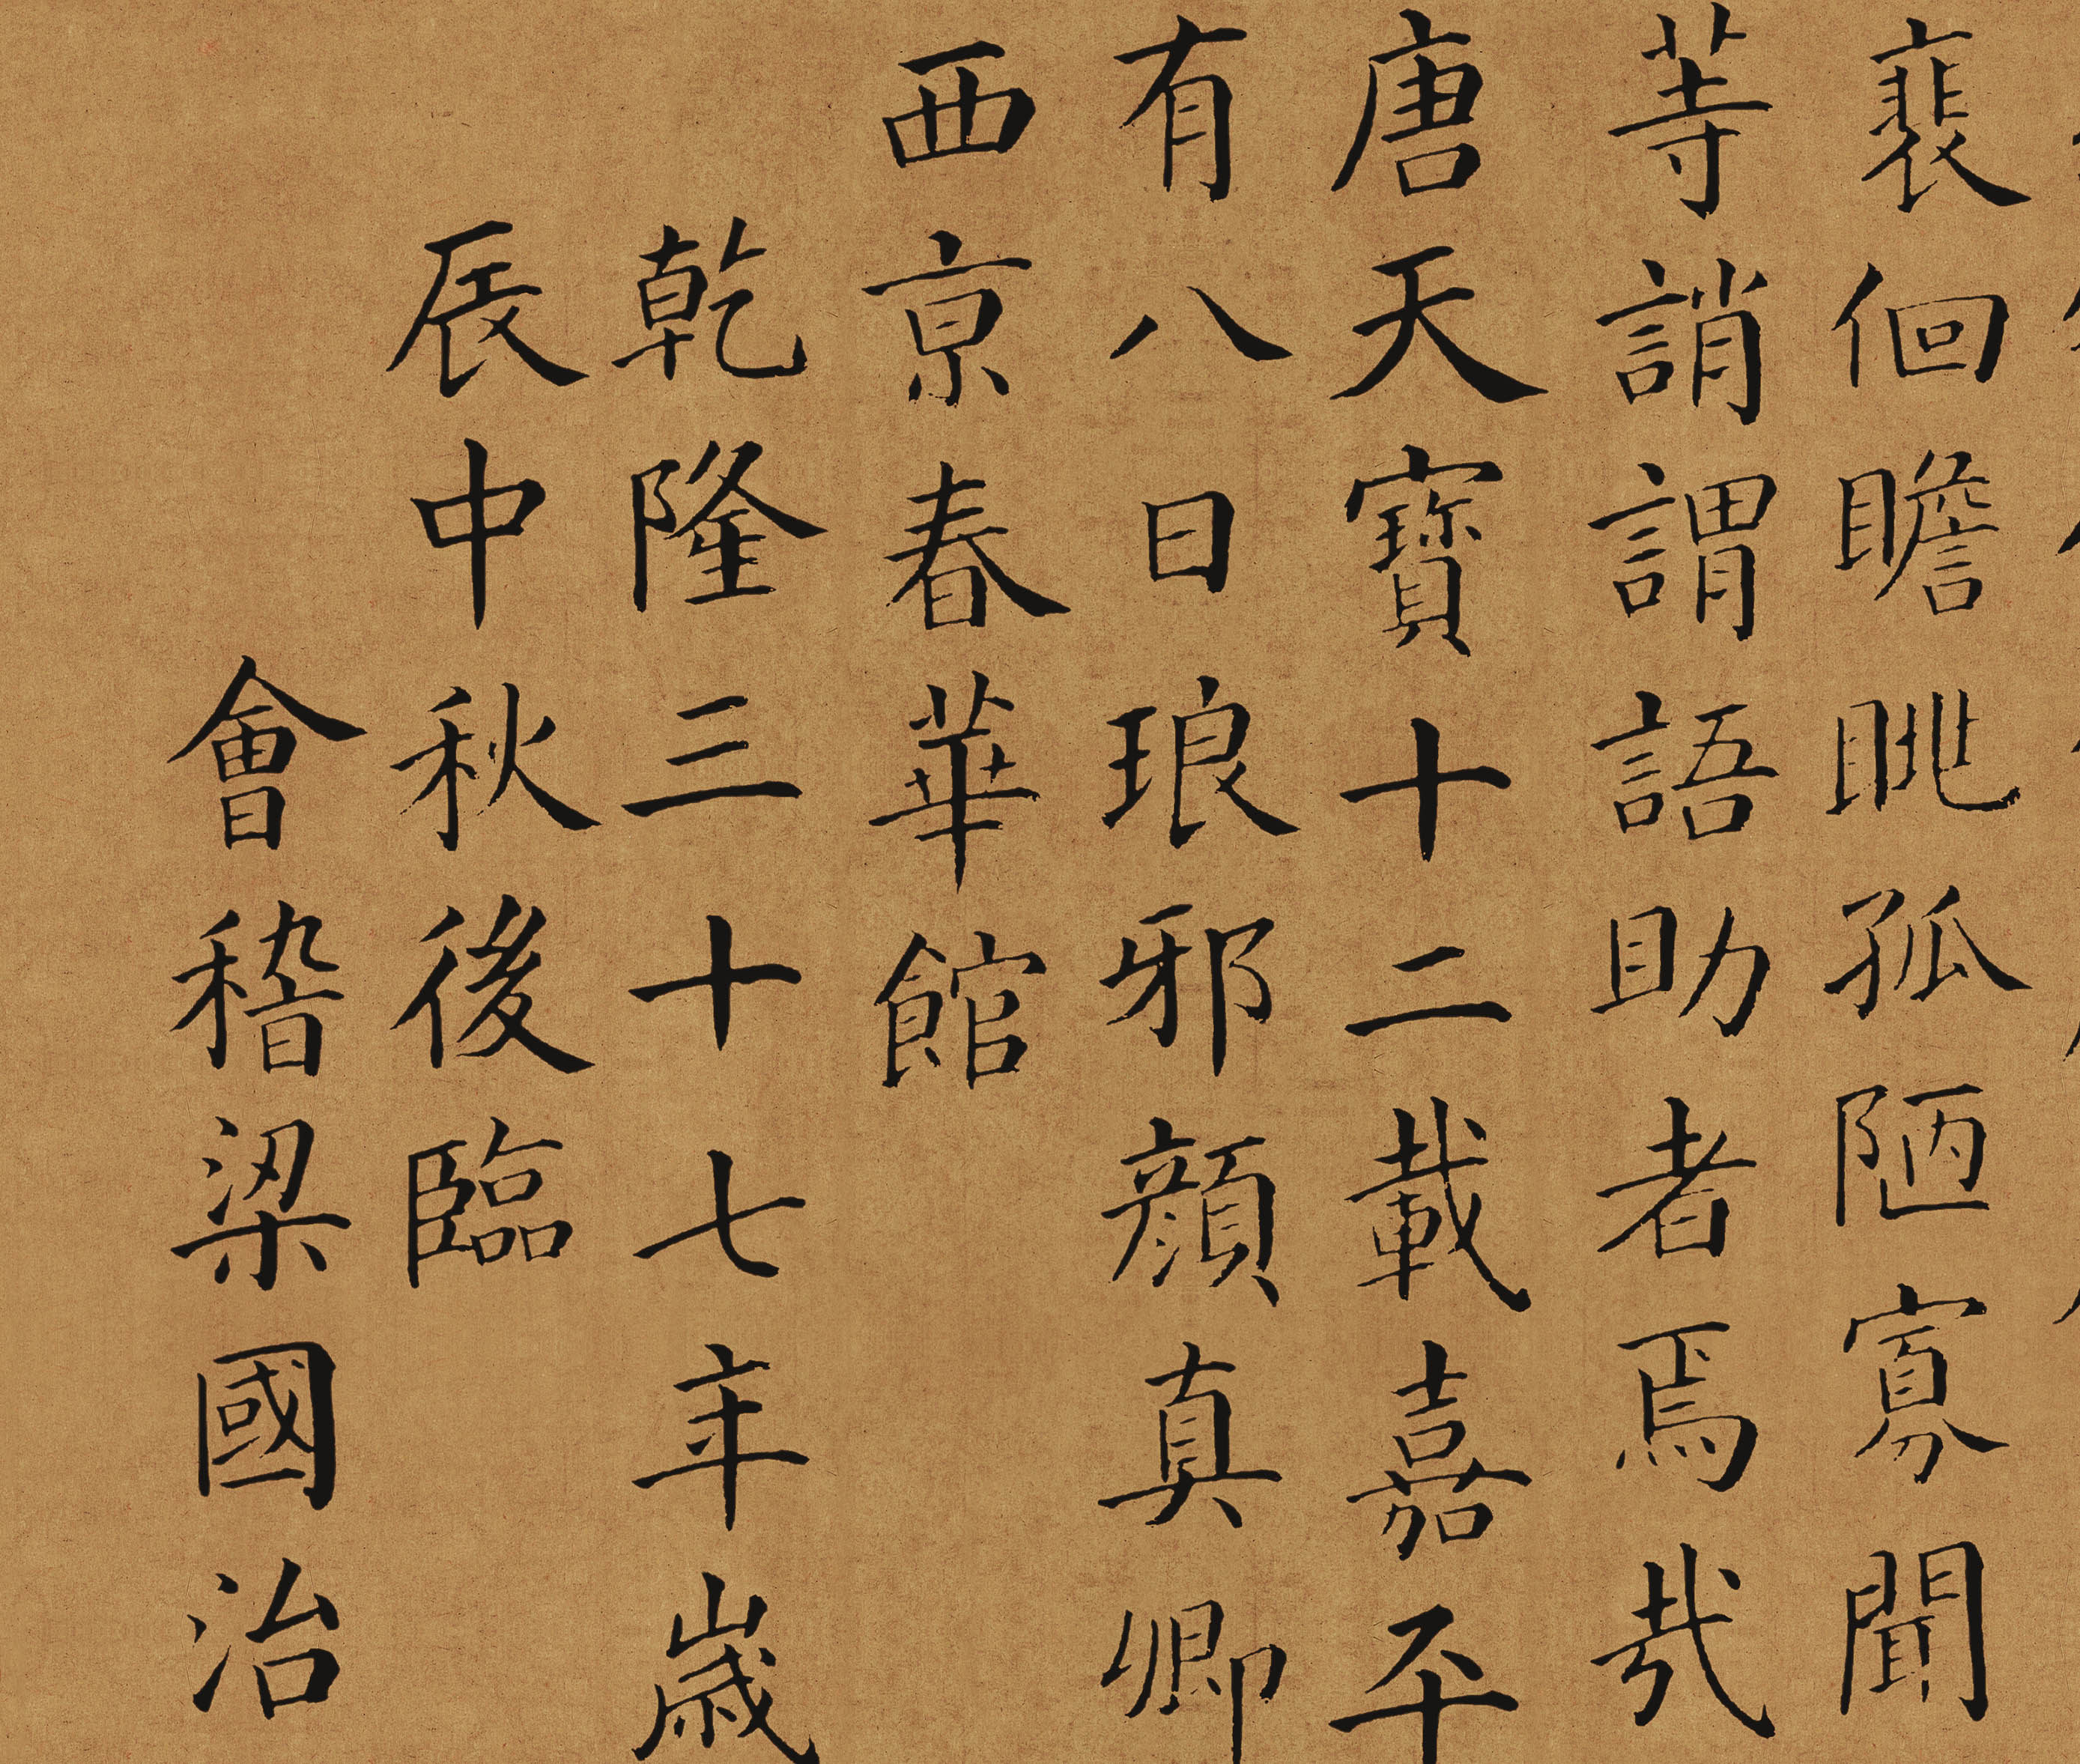 裴佪瞻眺孤陋寡聞
等誚謂語助者焉哉
唐天寶十二載嘉平
有八日琅邪顏真卿
西京春華館
乾隆三十七年歲
辰中秋後臨
會稽梁國治